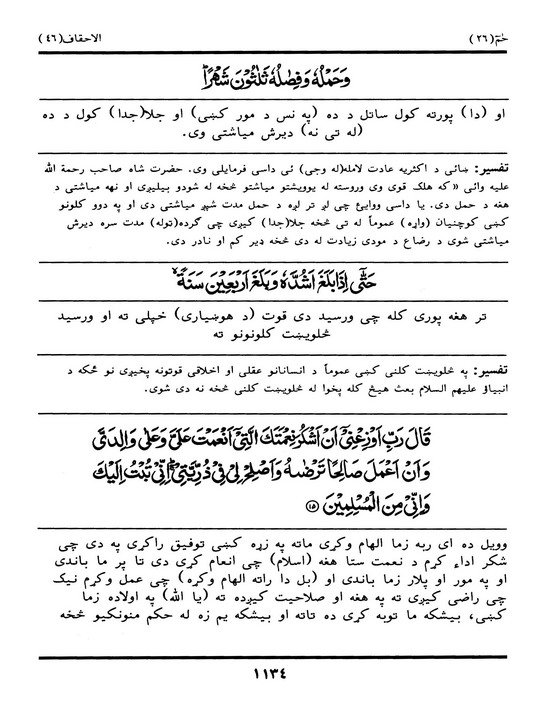 حٰمٓ(٢٦) الاحقاف(٤٦)
وَحَمْلُهٗ وَفِصٰلُهٗ ثَلٰثُوْنَ شَهْرًاؕ
او (دا) پورته کول ساتل د ده (په نس د مور کښی) او جلا(جدا) کول د ده
(له تی نه) دیرش میاشتی وی.
تفسیر: ښائی د اکثریه عادت لامله(له وجی) ئی داسی فرمایلی وی. حضرت شاه صاحب رحمة الله
علیه وائی «که هلک قوی وی وروسته له یوویشتو میاشتو څخه له شودو بیلیږی او نهه میاشتی د
هغه د حمل دی. یا داسی ووایئ چی لږ تر لږه د حمل مدت شپږ میاشتی دی او په دوو کلونو
کښی کوچنیان (واړه) عموماً له تی څخه جلا(جدا) کیږی چی ګرده(توله) مدت سره دیرش
میاشتی شوی د رضاع د مودی زیادت له دی څخه ډیر کم او نادر دی.
حَتّٰۤى اِذَا بَلَغَ اَشُدَّهٗ وَبَلَغَ اَرْبَعِيْنَ سَنَةًۙ
تر هغه پوری کله چی ورسید دی قوت (د هوښیاری) خپلی ته او ورسید
څلویښت کلونونو ته
تفسیر: په څلویښت کلنی کښی عموماً د انسانانو عقلی او اخلاقی قوتونه پخیږی نو ځکه د
انبیاؤ علیهم السلام بعث هیڅ کله پخوا له څلویښت کلنی څخه نه دی شوی.
قَالَ رَبِّ اَوْزِعْنِيْۤ اَنْ اَشْكُرَ نِعْمَتَكَ الَّتِيْۤ اَنْعَمْتَ عَلَيَّ وَعَلٰى وَالِدَيَّ
وَاَنْ اَعْمَلَ صَالِحًا تَرْضٰىهُ وَاَصْلِحْ لِيْ فِيْ ذُرِّيَّتِيْؕ اِنِّيْ تُبْتُ اِلَيْكَ
وَاِنِّيْ مِنَ الْمُسْلِمِيْنَ ⑮
وویل ده ای ربه زما الهام وکړی ماته په زړه کښی توفیق راکړی په دی چی
شکر اداء کړم د نعمت ستا هغه (اسلام) چی انعام کړی دی تا پر ما باندی
او په مور او پلار زما باندی او (بل دا راته الهام وکړه) چی عمل وکړم نیک
چی راضی کیږی ته په هغه او صلاحیت کیږده ته (یا الله) په اولاده زما
کښی، بیشکه ما توبه کړی ده تاته او بیشکه یم زه له حکم منونکیو څخه
١١٣٤